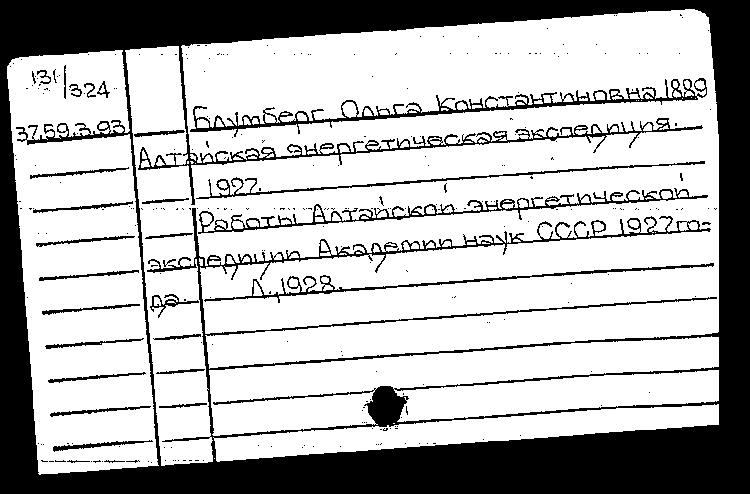 131/324
37.59.3.93
Блумберг, Ольга Константиновна, 1889
Алтайская энергетическая экспедиция.
1927.
Работы Алтайской энергетической
экспедиции Академии наук СССР 1927 го-
да. Л., 1928.